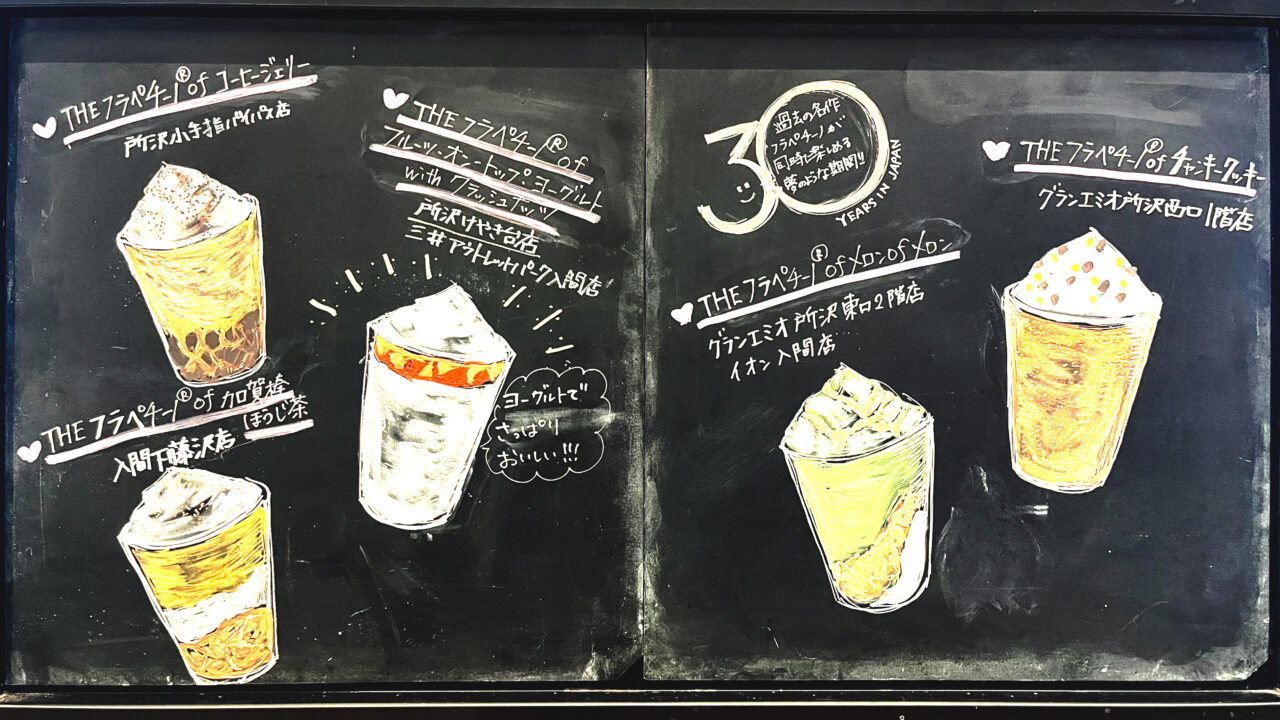 THE フラペチーノ® of コーヒージェリー
所沢小手指バイパス店
THE フラペチーノ® of
フルーツ・オン・トップ・ヨーグルト
with クラッシュナッツ
所沢けやき台店
三井アウトレットパーク入間店
ヨーグルトで
さっぱり
おいしい!!!
THE フラペチーノ® of 加賀棒
ほうじ茶
入間下藤沢店
30
過去の名作
フラペチーノが
同時に楽しめる
夢のような期間!!
YEARS IN JAPAN
THE フラペチーノ® of メロン of メロン
グランエミオ所沢東口2階店
イオン入間店
THE フラペチーノ® of チャンキークッキー
グランエミオ所沢西口1階店